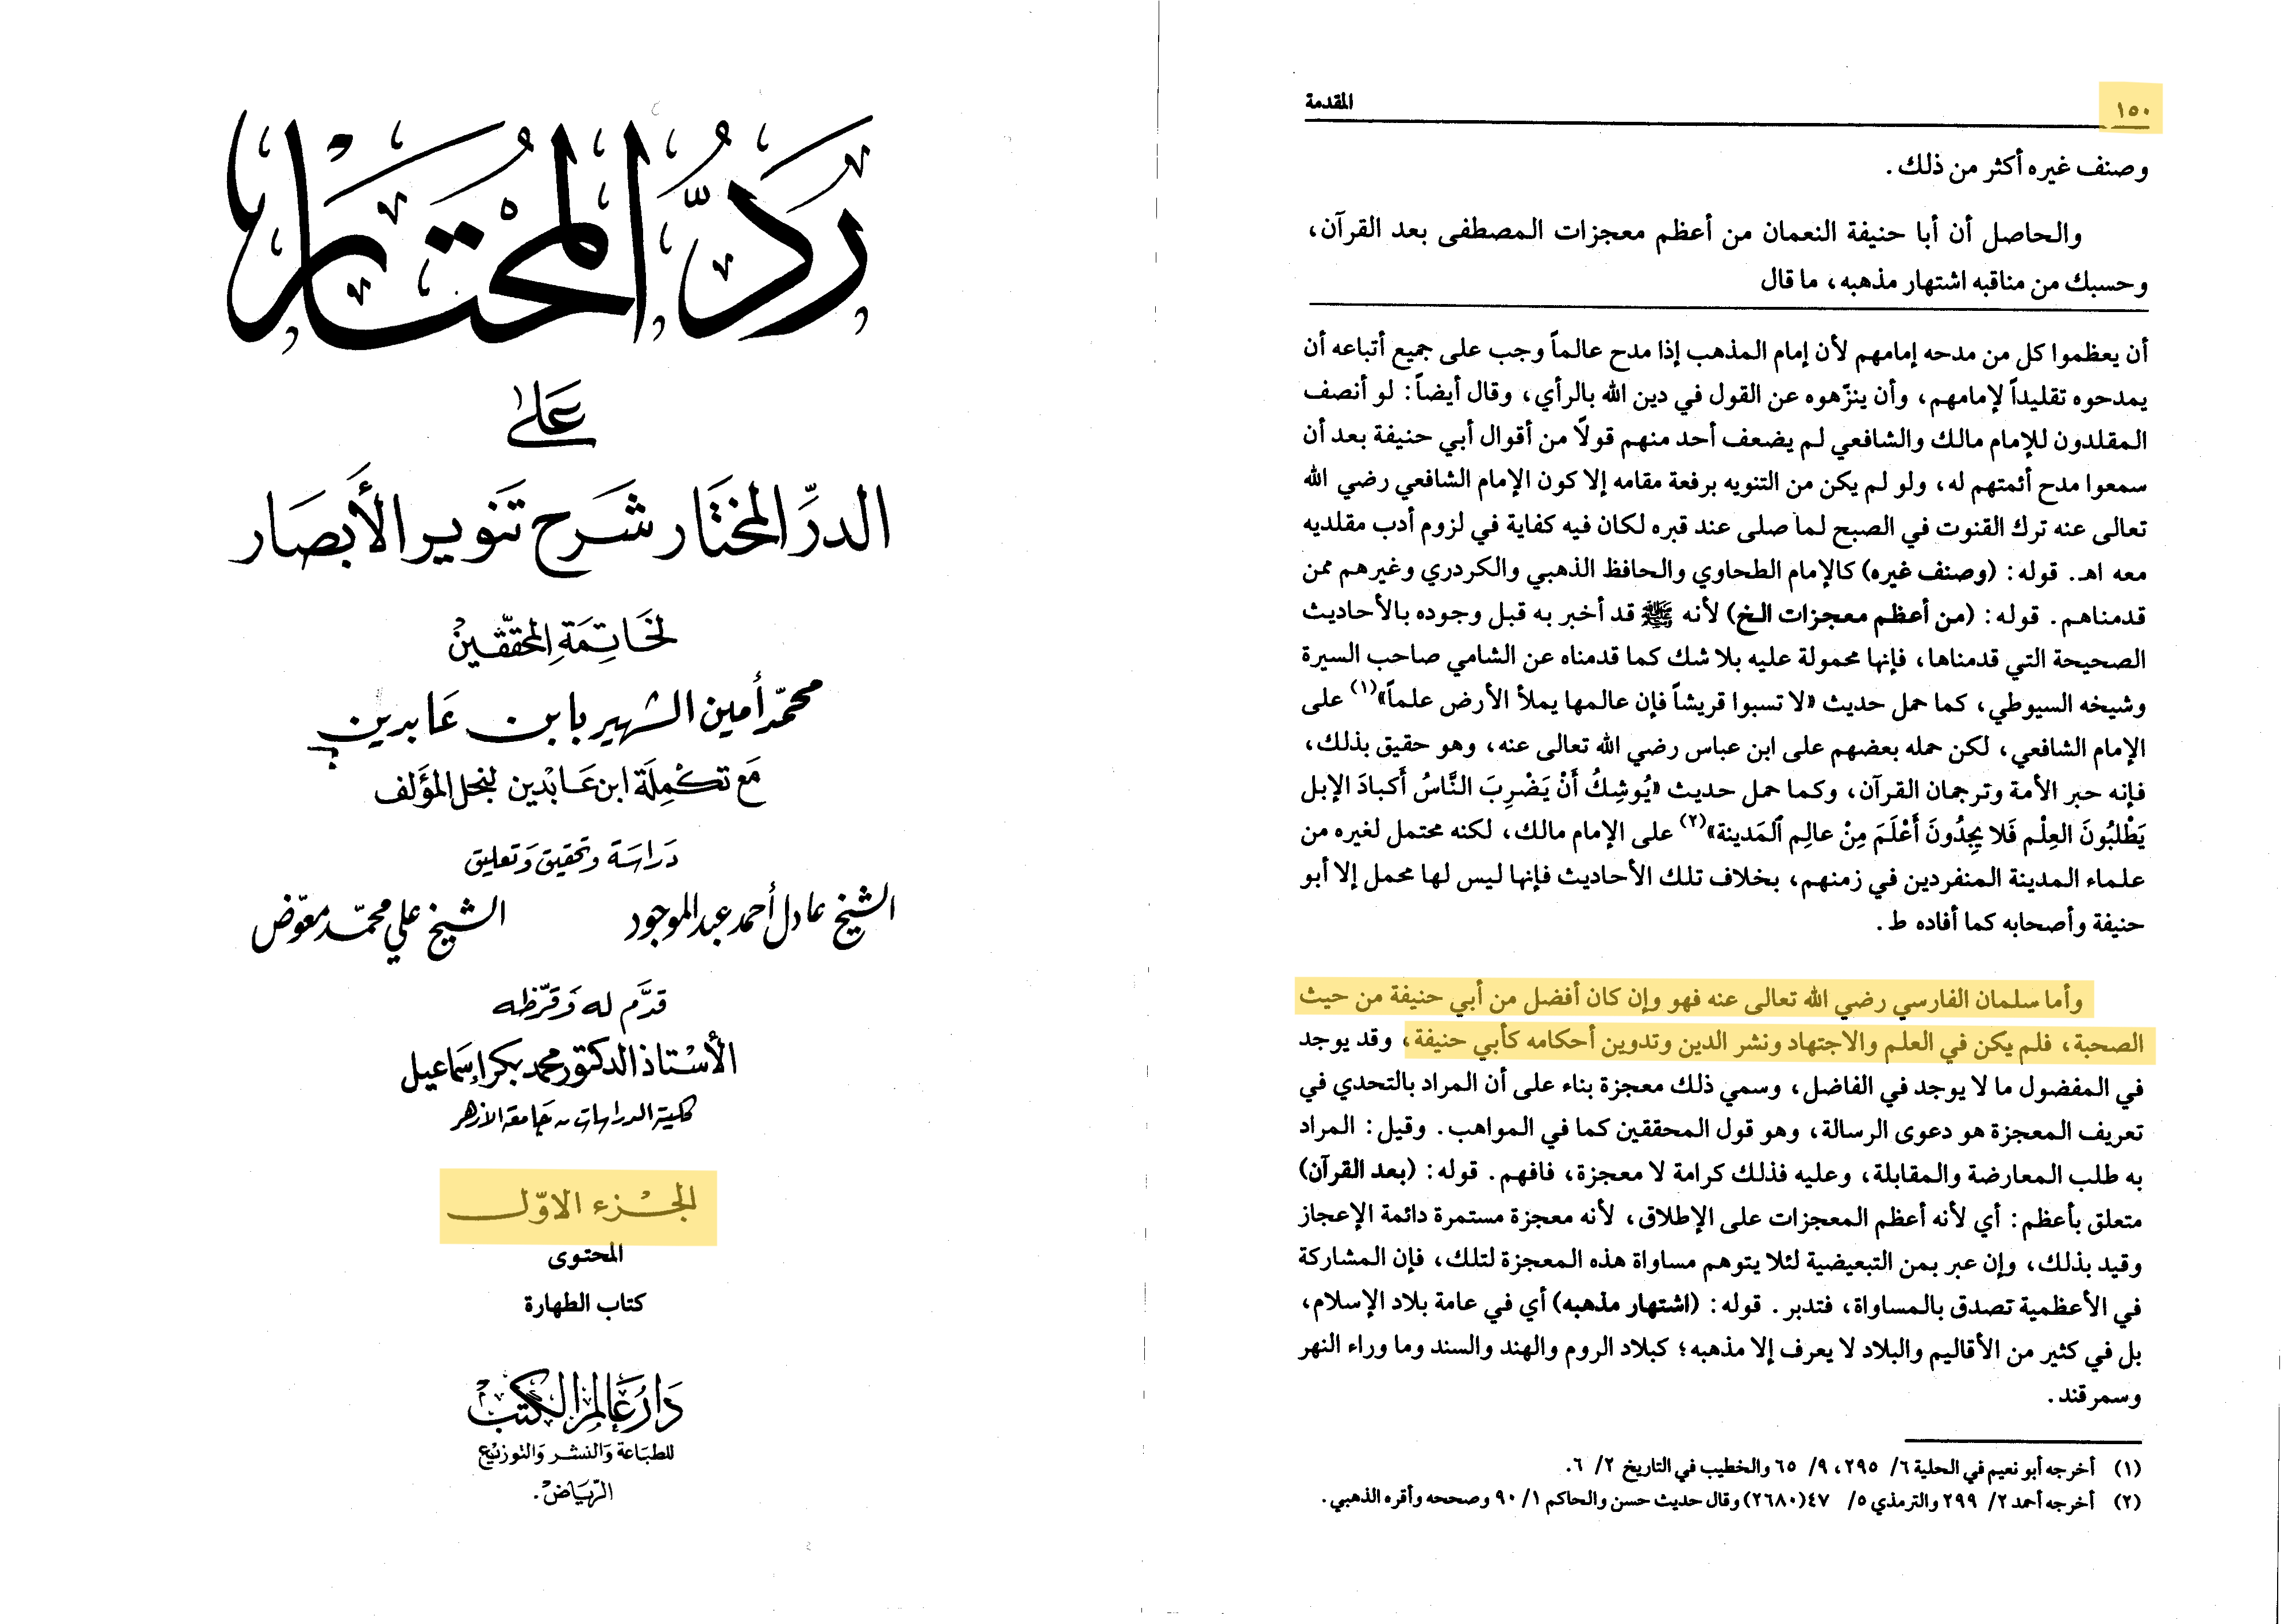 رَدُّ المُحْتَار
عَلى
الدرِّ المختَار شَرح تَنوير الأَبصَار
لخَاتِمَةِ المحَققِّين
محمّد أمين الشهير بابن عَابدين
مَع تكمِلَة ابن عَابْدين لنجل المؤَلف
دَراسَة وتحقيق وَتعليق
الشيخ عادل أحمد عبد الموجود الشيخ علي محمّد معوّض
قدَّم له وَقرّظه
الأسْتاذ الدكتور محمد بكر إسماعيل
كلية الدراسات - جَامعة الأزهر
الجزء الأوّل
المحتوى
كتاب الطهارة
دَار عَالم الكتب
للطبَاعة وَالنشر وَالتوزيع
الرّيَاض.
١٥٠ المقدمة
وصنف غيره أكثر من ذلك.
والحاصل أن أبا حنيفة النعمان من أعظم معجزات المصطفى بعد القرآن،
وحسبك من مناقبه اشتهار مذهبه، ما قال
أن يعظموا كل من مدحه إمامهم لأن إمام المذهب إذا مدح عالماً وجب على جميع أتباعه أن
يمدحوه تقليداً لإمامهم، وأن ينزّهوه عن القول في دين الله بالرأي، وقال أيضاً: لو أنصف
المقلدون للإمام مالك والشافعي لم يضعف أحد منهم قولًا من أقوال أبي حنيفة بعد أن
سمعوا مدح أئمتهم له، ولو لم يكن من التنويه برفعة مقامه إلا كون الإمام الشافعي رضي الله
تعالى عنه ترك القنوت في الصبح لما صلى عند قبره لكان فيه كفاية في لزوم أدب مقلديه
معه اهـ. قوله: (وصنف غيره) كالإمام الطحاوي والحافظ الذهبي والكردري وغيرهم ممن
قدمناهم. قوله: (من أعظم معجزات الخ) لأنه ﷺ قد أخبر به قبل وجوده بالأحاديث
الصحيحة التي قدمناها، فإنها محمولة عليه بلا شك كما قدمناه عن الشامي صاحب السيرة
وشيخه السيوطي، كما حمل حديث «لا تسبوا قريشاً فإن عالمها يملأ الأرض علماً»(١) على
الإمام الشافعي، لكن حمله بعضهم على ابن عباس رضي الله تعالى عنه، وهو حقيق بذلك،
فإنه حبر الأمة وترجمان القرآن، وكما حمل حديث «يُوشِكُ أَنْ يَضْرِبَ النَّاسُ أَكبادَ الإبل
يَطْلبُونَ العِلْم فَلا يجِدُونَ أَعْلَمَ مِنْ عالِم ٱلمَدينة»(٢) على الإمام مالك، لكنه محتمل لغيره من
علماء المدينة المنفردين في زمنهم، بخلاف تلك الأحاديث فإنها ليس لها محمل إلا أبو
حنيفة وأصحابه كما أفاده ط.
وأما سلمان الفارسي رضي الله تعالى عنه فهو وإن كان أفضل من أبي حنيفة من حيث
الصحبة، فلم يكن في العلم والاجتهاد ونشر الدين وتدوين أحكامه كأبي حنيفة، وقد يوجد
في المفضول ما لا يوجد في الفاضل، وسمي ذلك معجزة بناء على أن المراد بالتحدي في
تعريف المعجزة هو دعوى الرسالة، وهو قول المحققين كما في المواهب. وقيل: المراد
به طلب المعارضة والمقابلة، وعليه فذلك كرامة لا معجزة، فافهم. قوله: (بعد القرآن)
متعلق بأعظم: أي لأنه أعظم المعجزات على الإطلاق، لأنه معجزة مستمرة دائمة الإعجاز
وقيد بذلك، وإن عبر بمن التبعيضية لئلا يتوهم مساواة هذه المعجزة لتلك، فإن المشاركة
في الأعظمية تصدق بالمساواة، فتدبر. قوله: (اشتهار مذهبه) أي في عامة بلاد الإسلام،
بل في كثير من الأقاليم والبلاد لا يعرف إلا مذهبه؛ كبلاد الروم والهند والسند وما وراء النهر
وسمرقند.
(١) أخرجه أبو نعيم في الحلية ٦/ ٢٩٥، ٩/ ٦٥ والخطيب في التاريخ ٢/ ٦.
(٢) أخرجه أحمد ٢/ ٢٩٩ والترمذي ٥/ ٤٧(٢٦٨٠) وقال حديث حسن والحاكم ١/ ٩٠ وصححه وأقره الذهبي.